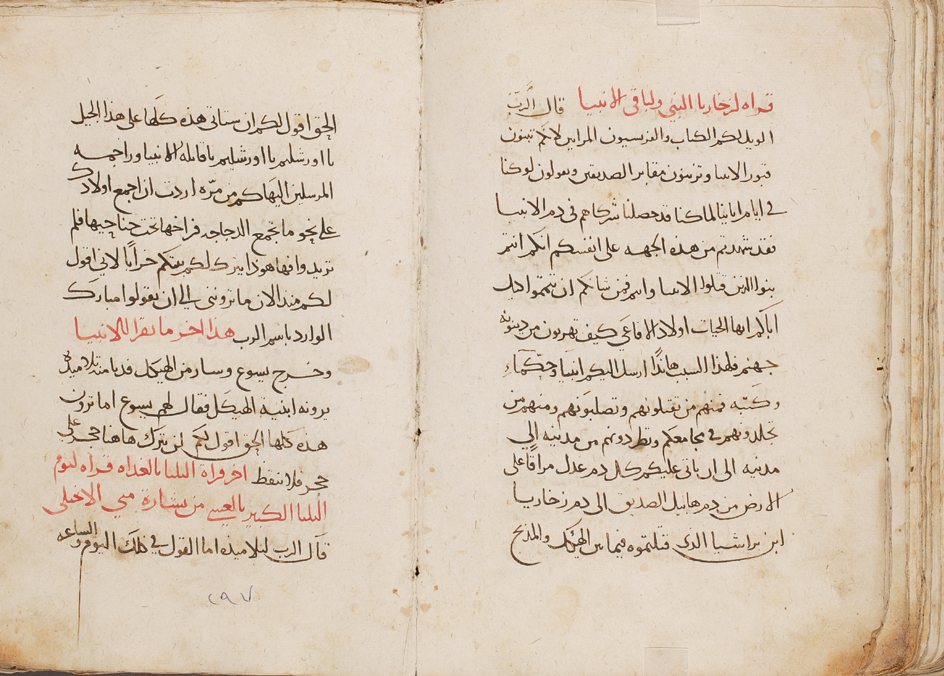 قراه لزخاريا النبي ولباقي الانبيا قال الرب
الويل لكم ايها الكتاب والفريسيون المرايين لانكم تبنون
قبور الانبيا وتزينون مقابر الصديقين وتقولون لو كنا
في ايام ابايينا لما كنا قد حصلنا شركاهم في دم الانبيا
فقد شهدتم من هذه الجهه على انفسكم انكم انتم
بنوا الذين قتلوا الانبيا وانتم فمن شانكم ان تتموا
ابآكم ايها الحيات اولاد الافاعي كيف تهربون من دينونه
جهنم فلهذا السبب هانذا ارسل اليكم انبيا وحكماء
وكتبه فمنهم من تقتلونهم وتصلبونهم ومنهم من
تجلدونهم في مجامعكم وتطردونهم من مدينه الي
مدينه الى ان ياتي عليكم كل دم عدل مراقا على
الارض من دم هابيل الصديق الى دم زخاريا
ابن براشيا الذي قتلتموه فيما بين الهيكل والمذبح
الحق اقول لكم ان ستاتي هذه كلها على هذا الجيل
يا اورشليم يا اورشليم يا قاتله الانبيا وراجمه
المرسلين اليها كم من مره اردت ان اجمع اولادك
على نحو ما تجمع الدجاجه فراخها تحت جناحيها فلم
تريدوا فها هوذا يترك لكم بيتكم خرابا لاني اقول
لكم منذ الان ما تروني الي ان تقولوا مبارك
الوارد باسم الرب هذا اخر ما يقرا للانبيا
وخرج يسوع وسار من الهيكل فدنا منه تلاميذه
يرونه ابنيه الهيكل فقال لهم يسوع اما ترون
هذه كلها الحق اقول لكم لن يترك هاهنا حجر على
حجر فلا ينقض اخر قراة الثلثا بالغداه قراه ليوم
الثلثا الكبير بالعشي من بشارة متي الانجلي
قال الرب لتلاميذه اما القول في ذلك اليوم والساعه
٢٩٧